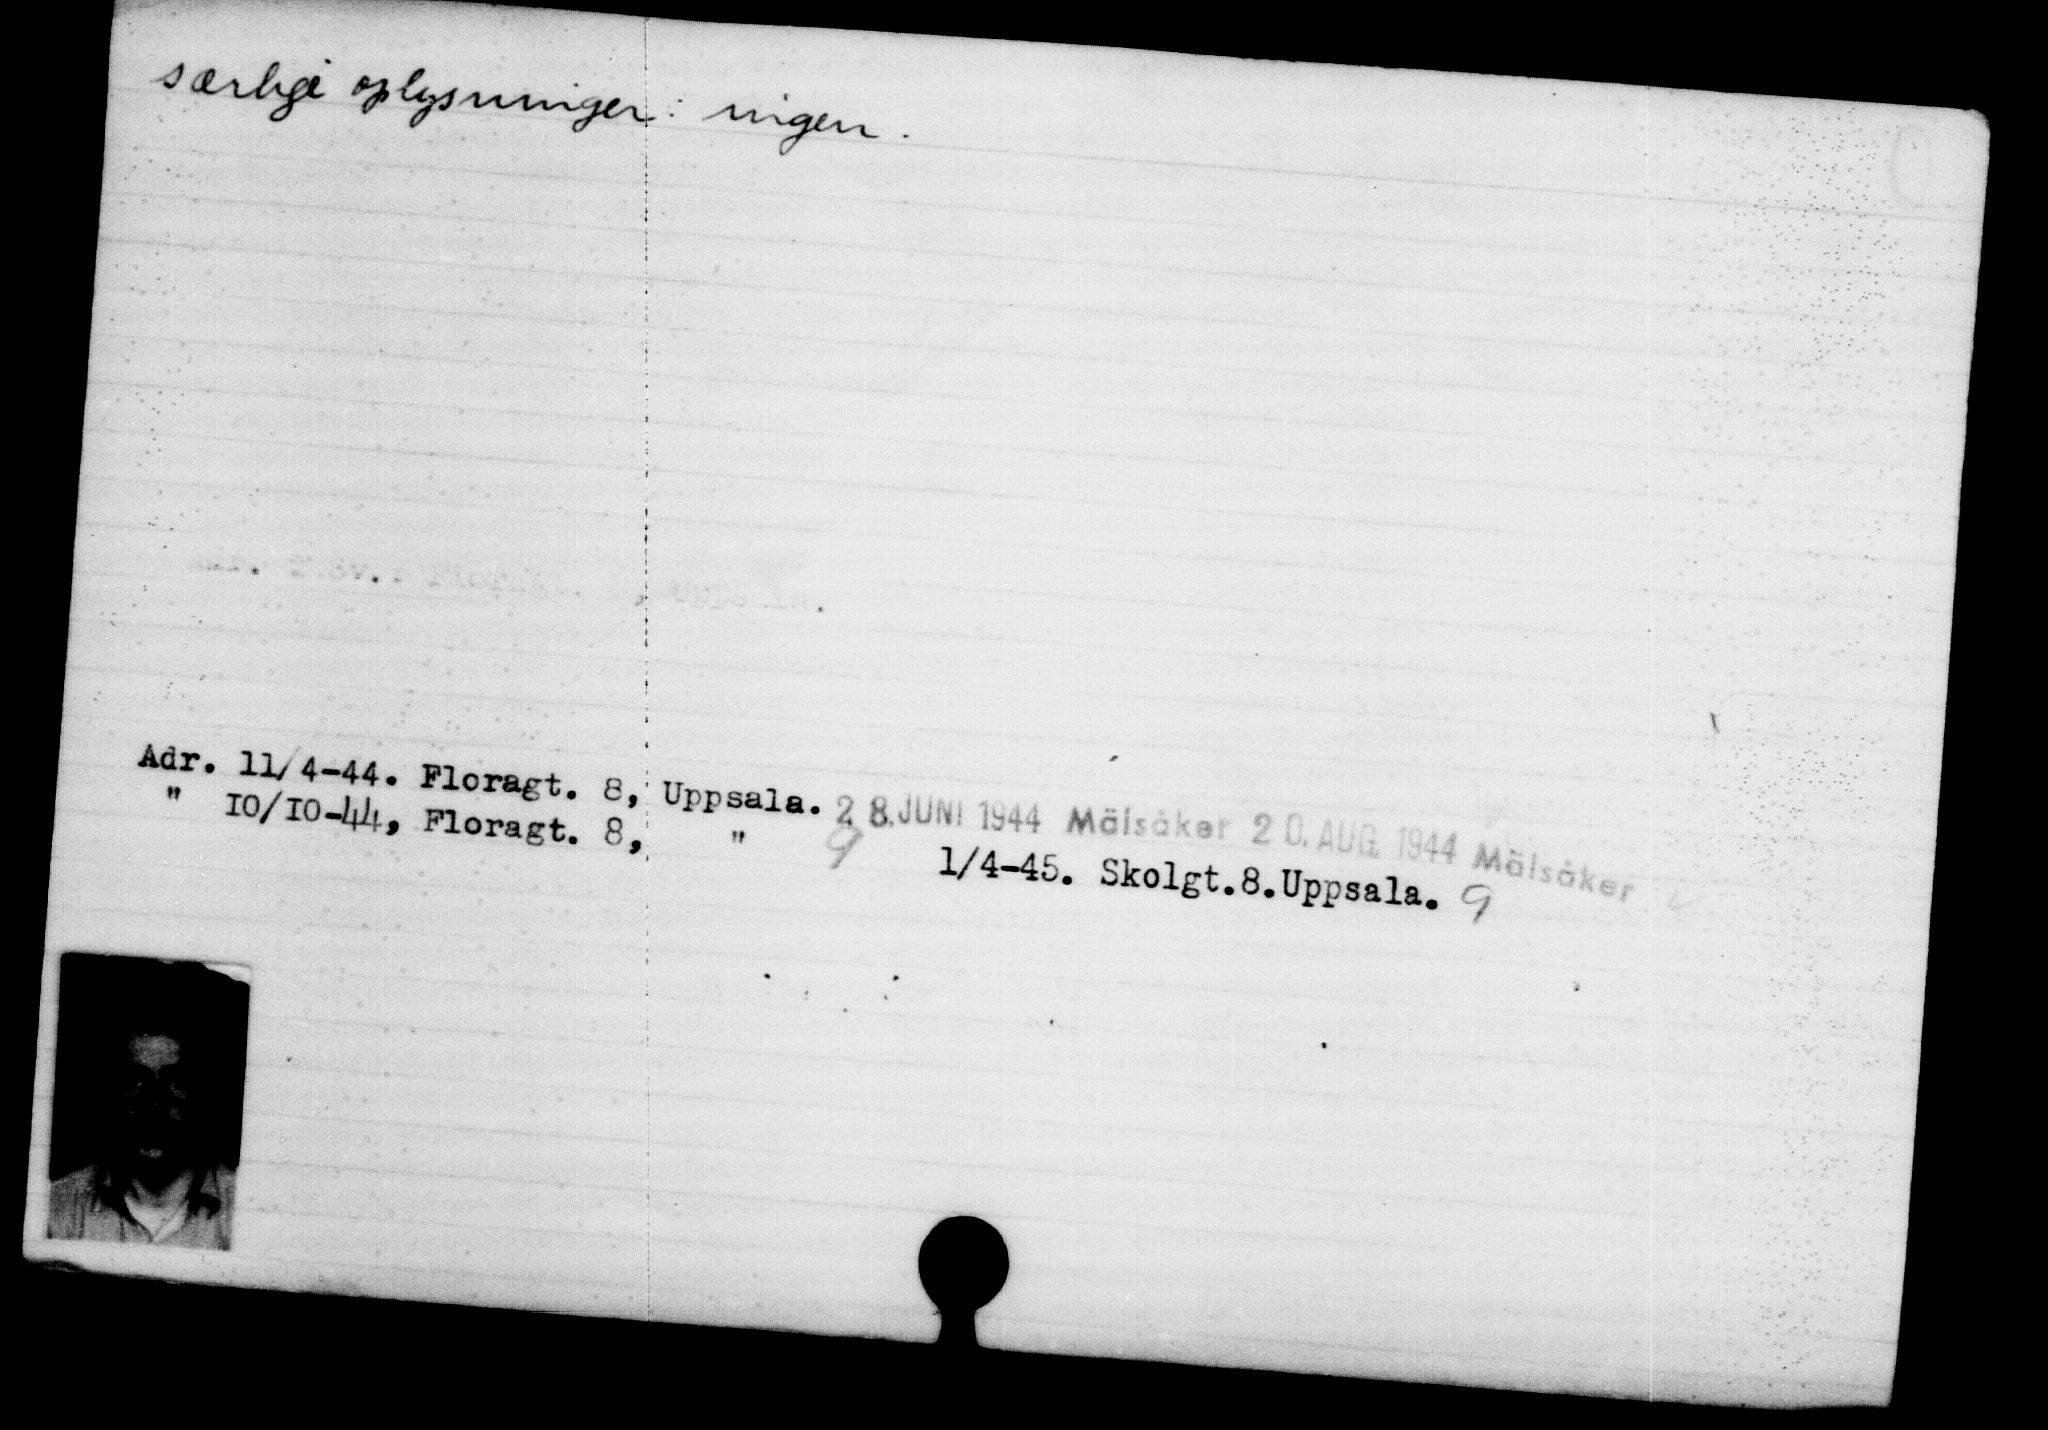 særlige oplysninger: ingen.
Adr. I.Sv.: Floragt. , Uppsala.
Adr. 11/4-44. Floragt. 8, Uppsala. 28. JUNI 1944 Mälsåker 20. AUG. 1944 Mälsåker
" IO/IO-44, Floragt. 8, " 9 1/4-45. Skolgt.8.Uppsala. 9